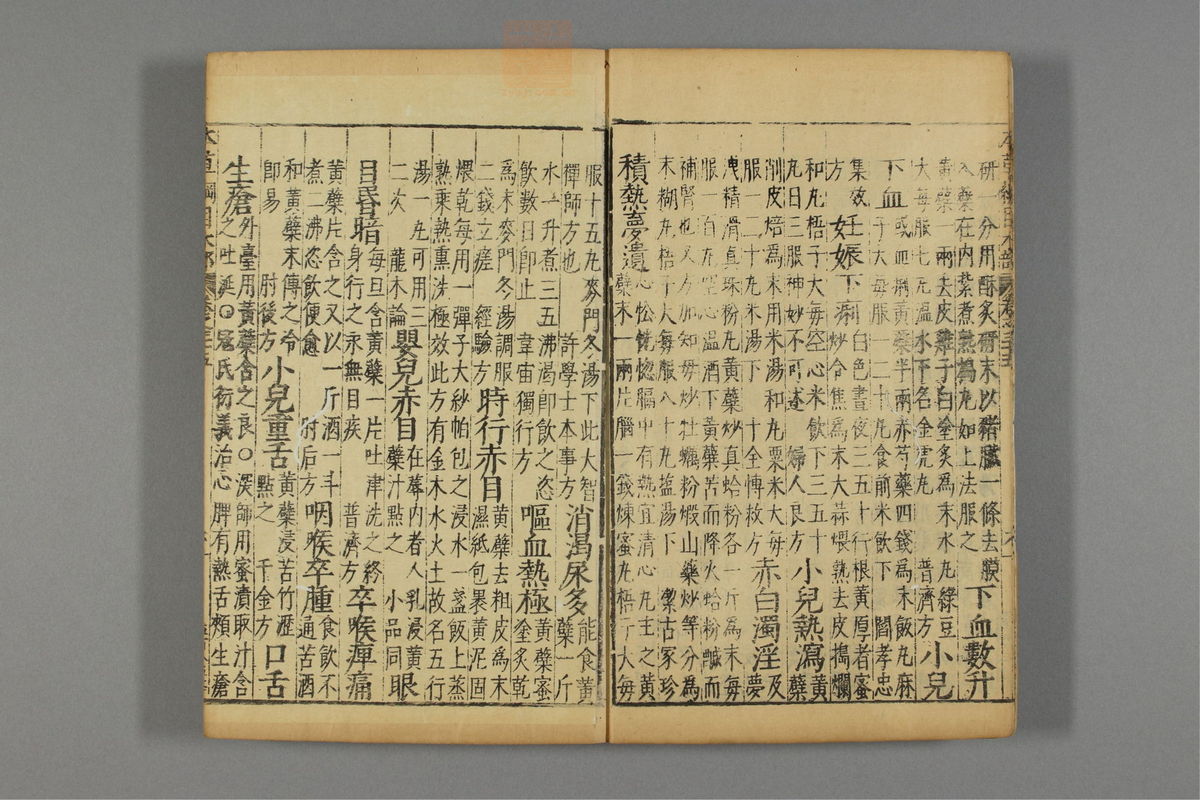 本草綱目木部 卷三十五
研一分用酥炙研末以猪臓一條去膜
入蘗在内紮煮熟為丸如上法服之
下血數升
黃蘗一兩去皮雞子白塗炙為末水丸綠豆
大每服七丸溫水下名金虎丸 普濟方
小兒
下血
或血痢黃蘗半兩赤芍藥四錢為末飯丸麻
子大每服一二十丸食前米飲下 閻孝忠
集效
方
妊娠下痢
白色晝夜三五十行根黃厚者蜜
炒令焦為末大蒜煨熟去皮搗爛
和丸梧子大每空心米飲下三五十
丸日三服神妙不可述 婦人良方
小兒熱瀉
黃
蘗
削皮焙為末用米湯和丸粟米大每
服一二十丸米湯下 十全博救方
赤白濁淫
及
夢
洩精滑真珠粉丸黃蘗炒真蛤粉各一斤為末每
服一百丸空心溫酒下黃蘗苦而降火蛤粉鹹而
補腎也又方加知母炒牡蠣粉煅山藥炒等分為
末糊丸梧子大每服八十丸塩湯下 潔古家珍
積熱夢遺
心忪恍惚膈中有熱宜清心丸主之黃
蘗末一兩片腦一錢煉蜜丸梧子大每
服十五丸麥門冬湯下此大智
禪師方也 許學士本事方
消渴尿多
能食黃
蘗一斤
水一升煮三五沸渴即飲之恣
飲數日即止 韋宙獨行方
嘔血熱極
黃蘗蜜
塗炙乾
為末麥門冬湯調服
二錢立瘥 經驗方
時行赤目
黃蘗去粗皮為末
濕紙包裹黃泥固
煨乾每用一彈子大紗帕包之浸水一盞飯上蒸
熟乘熱熏洗極效此方有金木水火土故名五行
湯一丸可用三
二次 龍木論
嬰兒赤目
在蓐内者人乳浸黃
蘗汁點之 小品同
眼
目昏暗
每旦含黃蘗一片吐津洗之終
身行之永無目疾 普濟方
卒喉痺痛
黃蘗片含之又以一斤酒一斗
煮二沸恣飲便愈 肘后方
咽喉卒腫
食飲不
通苦酒
和黃蘗末傅之冷
即易 肘後方
小兒重舌
黃蘗浸苦竹瀝
點之 千金方
口舌
生瘡
外臺用黃蘗含之良〇深師用蜜漬取汁含
之吐涎〇寇氏衍義治心脾有熱舌頰生瘡
本草綱目木部 卷三十五